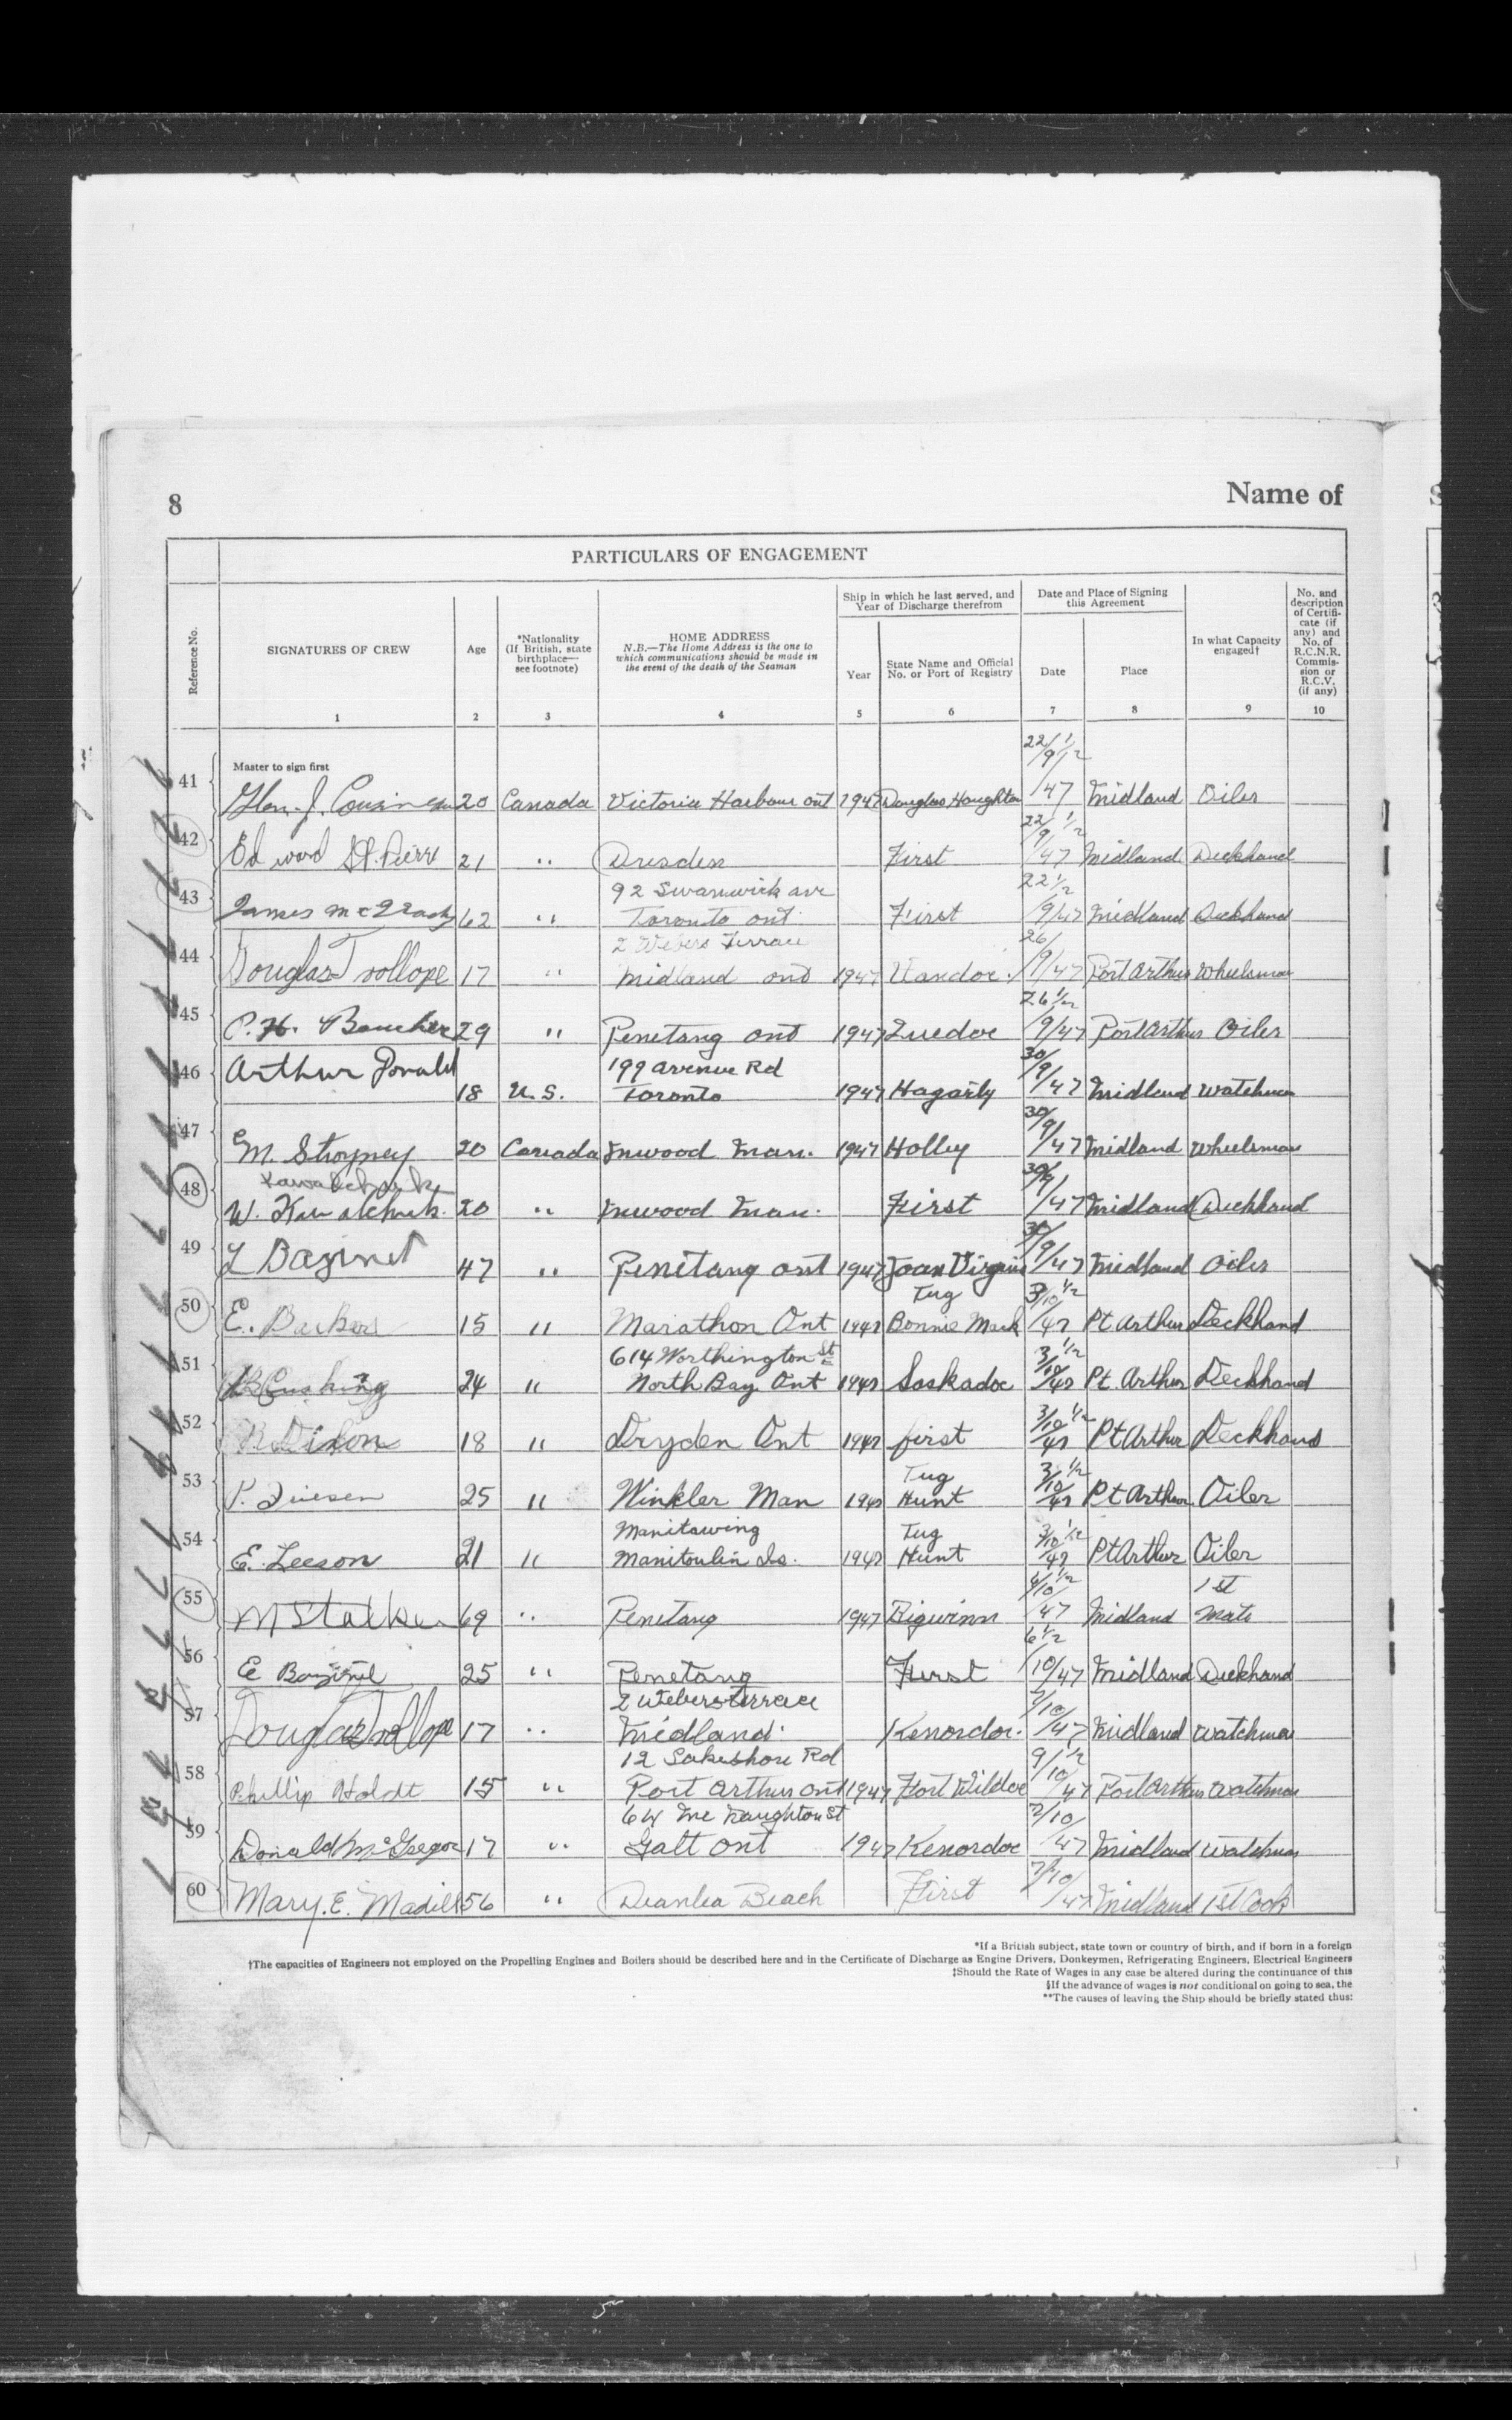 8
Name of
PARTICULARS OF ENGAGEMENT
Reference No.
SIGNATURES OF CREW
Age
*Nationality
(If British, state
birthplace—
see footnote)
HOME ADDRESS
N.B.—The Home Address is the one to
which communications should be made in
the event of the death of the Seaman
Ship in which he last served, and
Year of Discharge therefrom
Year
State Name and Official
No. or Port of Registry
Date and Place of Signing
this Agreement
Date
Place
In what Capacity
engaged†
No. and
description
of Certifi-
cate (if
any) and
No. of
R.C.N.R.
Commis-
sion or
R.C.V.
(if any)
1 2 3 4 5 6 7 8 9 10
Master to sign first
22/9 1/2
41 Glen. J. 20 Canada Victoria Harbour ont 1947 Douglas Houghton /47 Midland Oiler
22/9 1/2
42 Edward St. Pierre 21 " Dresden First /47 Midland Deckhand
92 Swanwick ave 22 1/2
43 James 62 " Toronto ont. First 9/47 Midland Deckhand
2 Webers Terrace 26/
44 Douglas Trollope 17 " Midland ont 1947 Vandoc. 9/47 Port Arthur Wheelsman
26 1/2
45 P. H. Boucher 29 " Penetang ont 1947 Quedoc 9/47 Port Arthur Oiler
199 Avenue Rd 30/9
46 Arthur Donald 18 U.S. Toronto 1947 Hagarty /47 Midland Watchman
30/9
47 M. Stroyney 20 Canada Inwood Man. 1947 Holley /47 Midland Wheelsman
Kawalchuk 30/9
48 W. Kawalchuk. 20 " Inwood Man. First /47 Midland Deckhand
30/
49 L Bazinet 47 " Penetang ont 1947 Joan Virginia 9/47 Midland Oiler
Tug 3/10 1/2
50 E. Barker 15 " Marathon Ont 1947 Bonnie Mack /47 Pt Arthur Deckhand
614 Worthington St E 3/10 1/2
51 Cushing 24 " North Bay Ont 1947 Saskadoc /47 Pt. Arthur Deckhand
3/10 1/2
52 Dixon 18 " Dryden Ont 1947 first /47 Pt Arthur Deckhand
Tug 3/10 1/2
53 P. Friesen 25 " Winkler Man 1947 Hunt /47 Pt Arthur Oiler
Manitawing Tug 3/10 1/2
54 E. Leeson 21 " Manitoulin Is. 1947 Hunt /47 Pt Arthur Oiler
6/10 1/2 1st
55 M Stalker 69 " Penetang 1947 Bigwinn /47 Midland Mate
6 1/2
56 E Bazinet 25 " Penetang First /10/47 Midland Deckhand
2 Webers Terrace 7/10
57 Douglas Trollope 17 " Midland. Kenordoc. /47 Midland Watchman
12 Lakeshore Rd 9/10 1/2
58 Phillip Holdt 15 " Port Arthur ont 1947 Fort Wildoc /47 Port Arthur Watchman
64 Mc Naughton St 7/10
59 Donald McGregor 17 " Galt ont 1947 Kenordoc /47 Midland Watchman
7/10
60 Mary. E. Madill 56 " Deanlea Beach First /47 Midland 1st Cook
*If a British subject, state town or country of birth, and if born in a foreign
†The capacities of Engineers not employed on the Propelling Engines and Boilers should be described here and in the Certificate of Discharge as Engine Drivers, Donkeymen, Refrigerating Engineers, Electrical Engineers
‡Should the Rate of Wages in any case be altered during the continuance of this
§If the advance of wages is not conditional on going to sea, the
**The causes of leaving the Ship should be briefly stated thus: